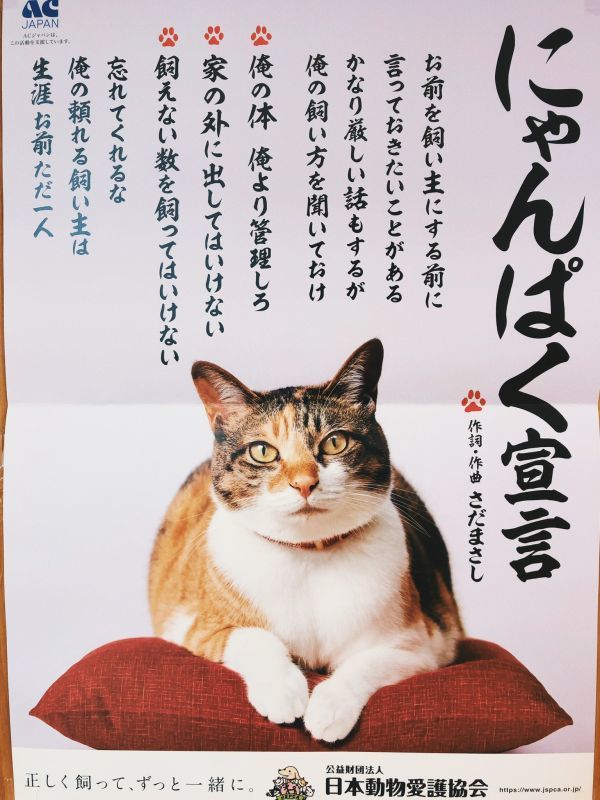 にゃんぱく宣言
作詞・作曲 さだまさし
お前を飼い主にする前に
言っておきたいことがある
かなり厳しい話もするが
俺の飼い方を聞いておけ
俺の体 俺より管理しろ
家の外に出してはいけない
飼えない数を飼ってはいけない
忘れてくれるな
俺の頼れる飼い主は
生涯 お前ただ一人
AC
JAPAN
ACジャパンは、
この活動を支援しています。
正しく飼って、ずっと一緒に。
公益財団法人
日本動物愛護協会
https://www.jspca.or.jp/